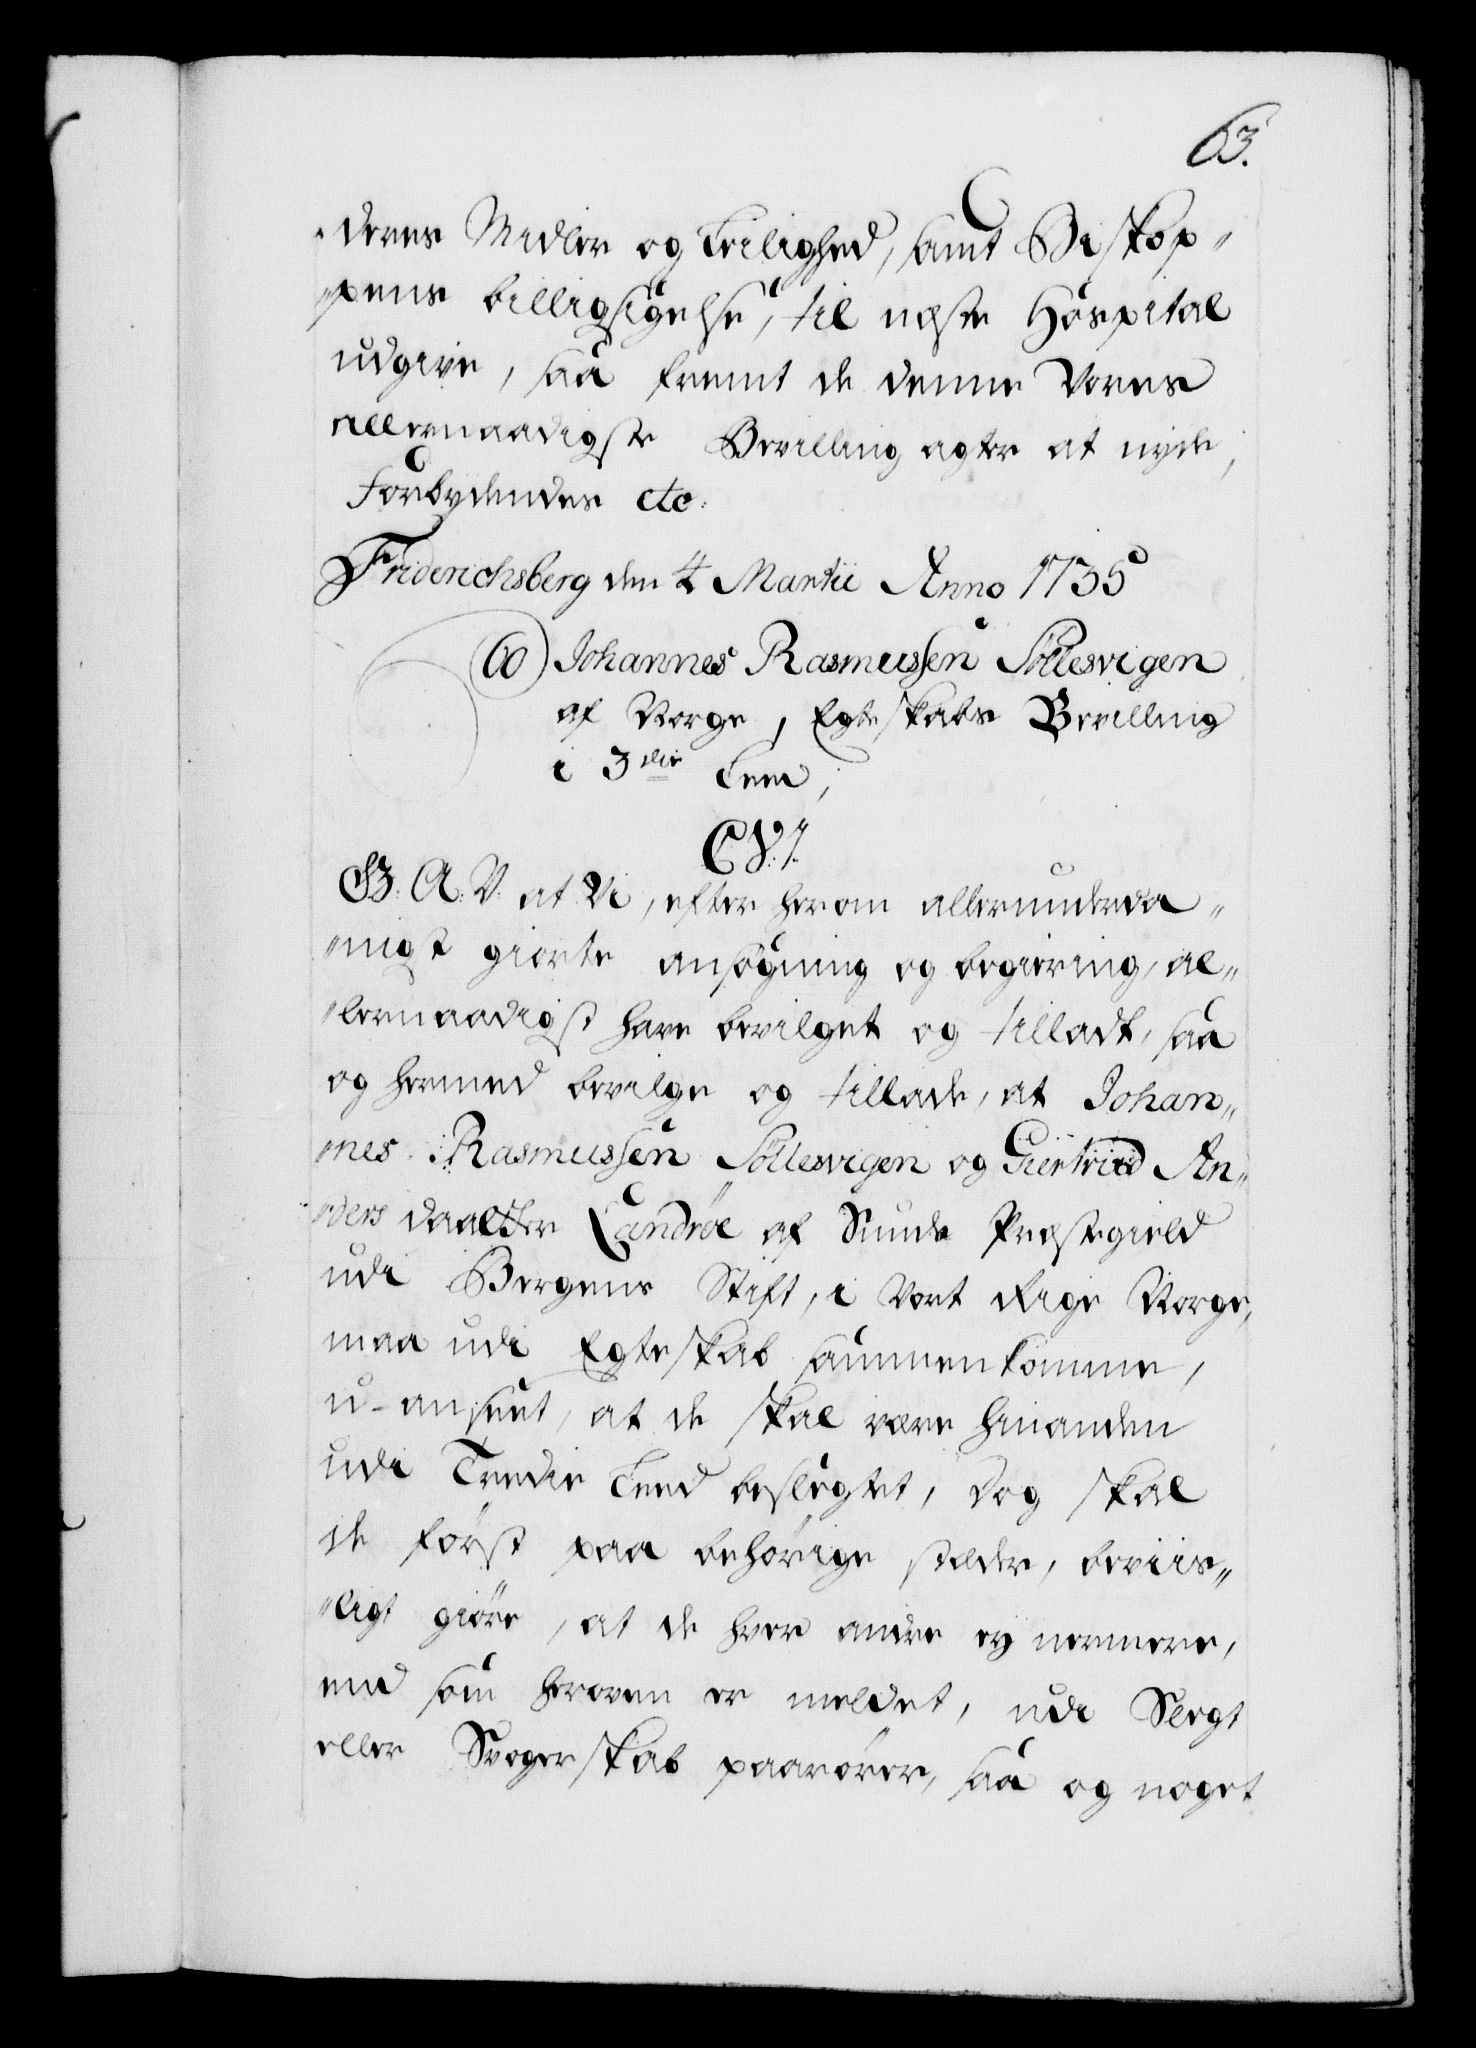 63.
deres Midler og Leilighed, samt Biskop„
„pens billigsigelse, til neste Hospital
udgive, saa fremt de denne Vores
allernaadigste Bevilling agter at nyde,
Forbydendes etc:
Friderichsberg den 4 Martii Anno 1735
60) Johannes Rasmussen Söllesvigen
af Norge, Egteskabs Bevilling
i 3die Leed,
C. V. I.
G. A. V. at Vi, efter herom allerunderda„
„nigst giorte ansögning og begiering, al„
„lernaadigst have bevilget og tilladt, saa
og hermed bevilge og tillade, at Johan„
nes Rasmussen Söllesvigen og Giertrud An„
„ders daatter Landröe af Sunde Præstegield
udi Bergens Stift, i Vort Rige Norge,
maa udi Egteskab sammenkomme,
u-anseet, at de skal være hinanden
udi Tredie Leed beslegtet, Dog skal
de först paa behörige stæder, beviis„
„ligt giöre, at de hver andre ey nermere,
end som heroven er meldet, udi Slegt
eller Svogerskab paarörer, saa og noget